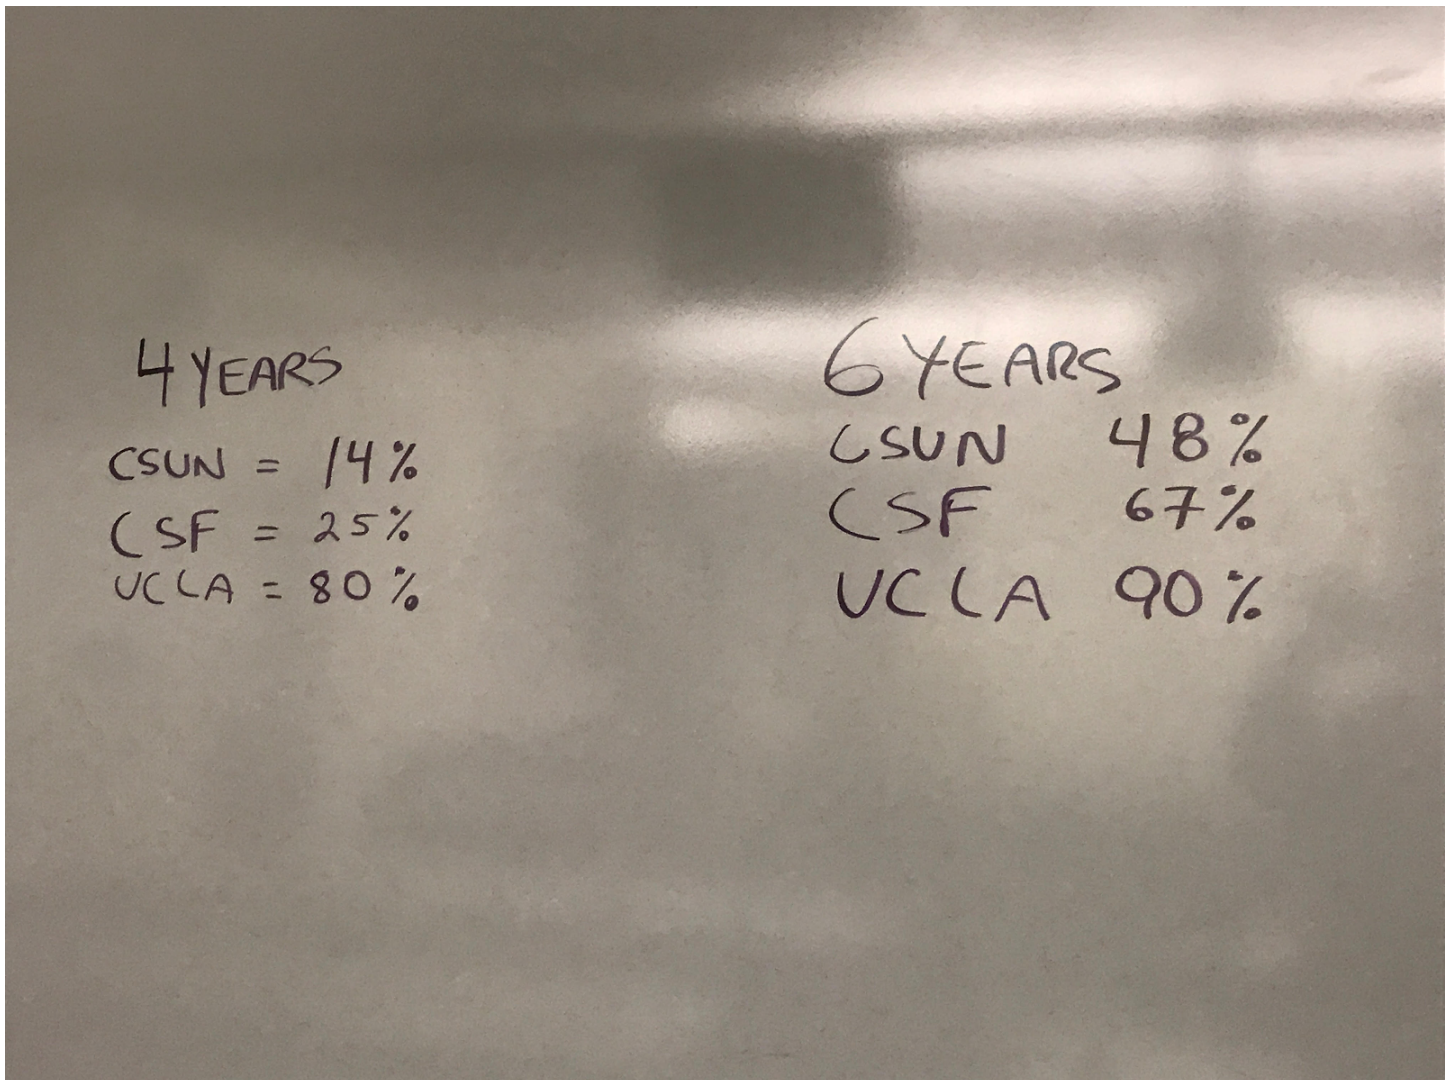 4 YEARS
CSUN = 14%
CSF = 25%
UCLA = 80%
6 YEARS
CSUN 48%
CSF 67%
UCLA 90%